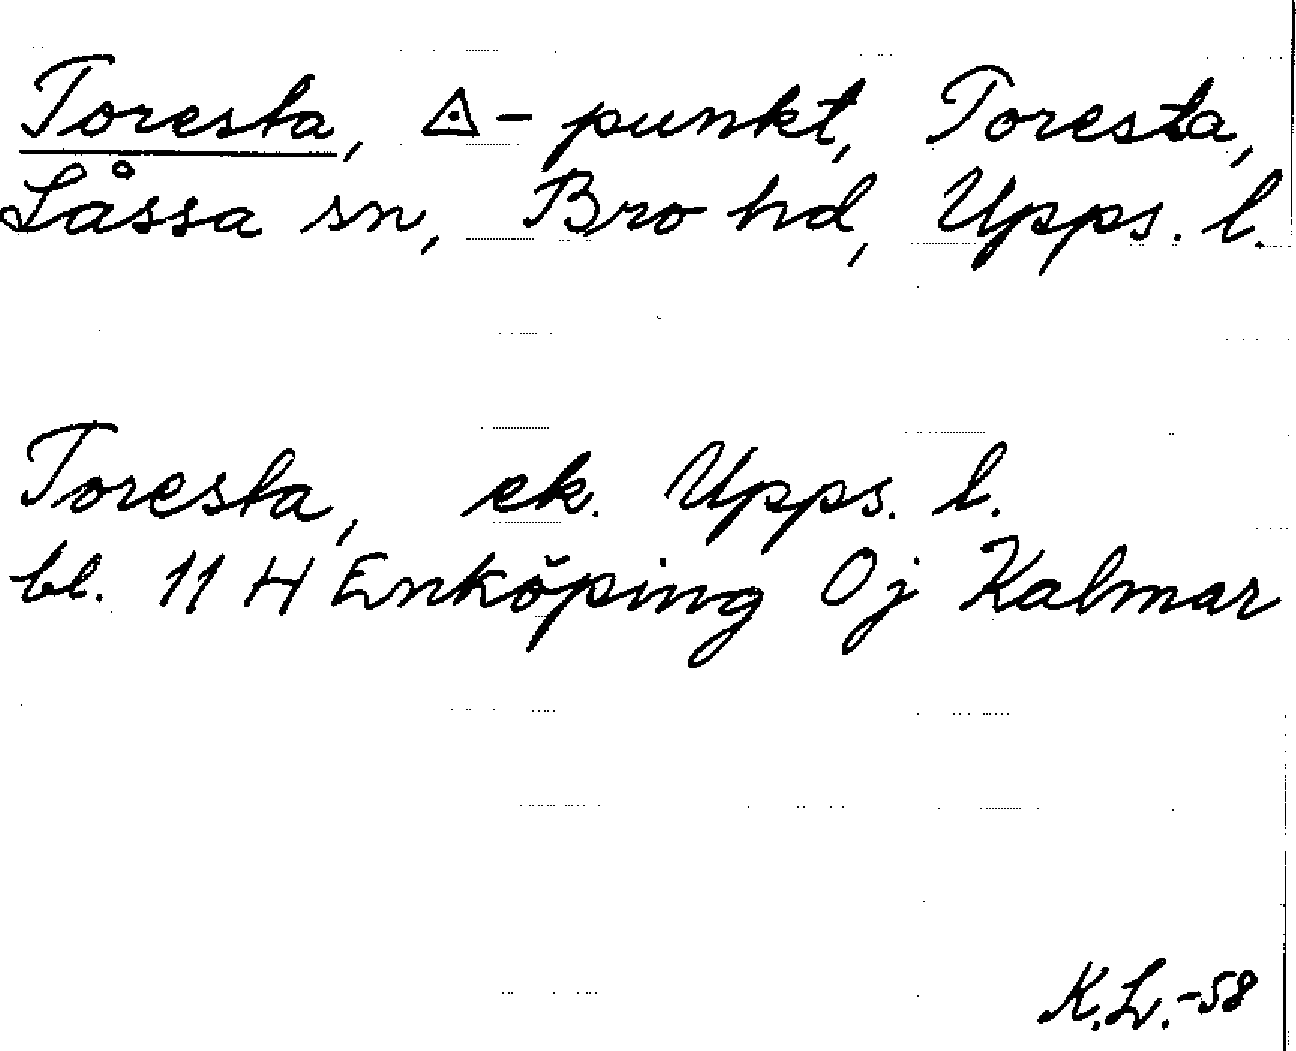 Toresta, ◬-punkt, Toresta,
Låssa sn, Bro hd, Upps. l.
Toresta, ek. Upps. l.
bl. 11 H Enköping Oj Kalmar
K.L.-58